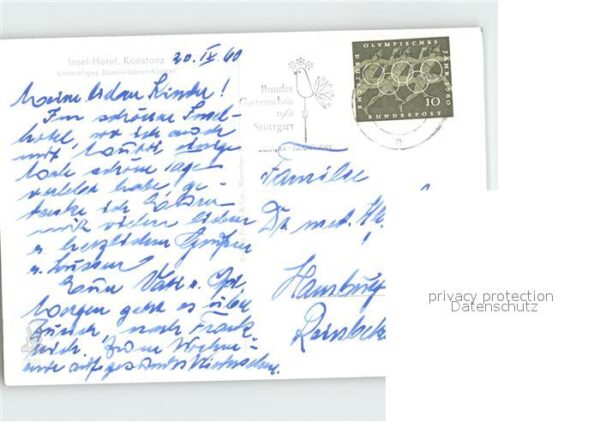 Insel-Hotel, Konstanz
ehemaliges Dominikaner-Kloster
20. IX 60
Meine lieben Kinder!
Im schönen Insel-
hotel, wo ich auch
mit
noch schöne Tage
verlebt habe, ge-
denke ich Euer
mit vielen lieben
u herzlichen Grüßen
u. Küssen
Euer Vati u. Opi.
Morgen geht es über
Zürich, nach Frank
reich. Zum Wochen-
ende
Bundes
Gartenschau
1961
Stuttgart
DEUTSCHE OLYMPISCHES JAHR 1960
10
BUNDESPOST
Familie
Dr. med.
Hamburg
Reinbek
privacy protection
Datenschutz